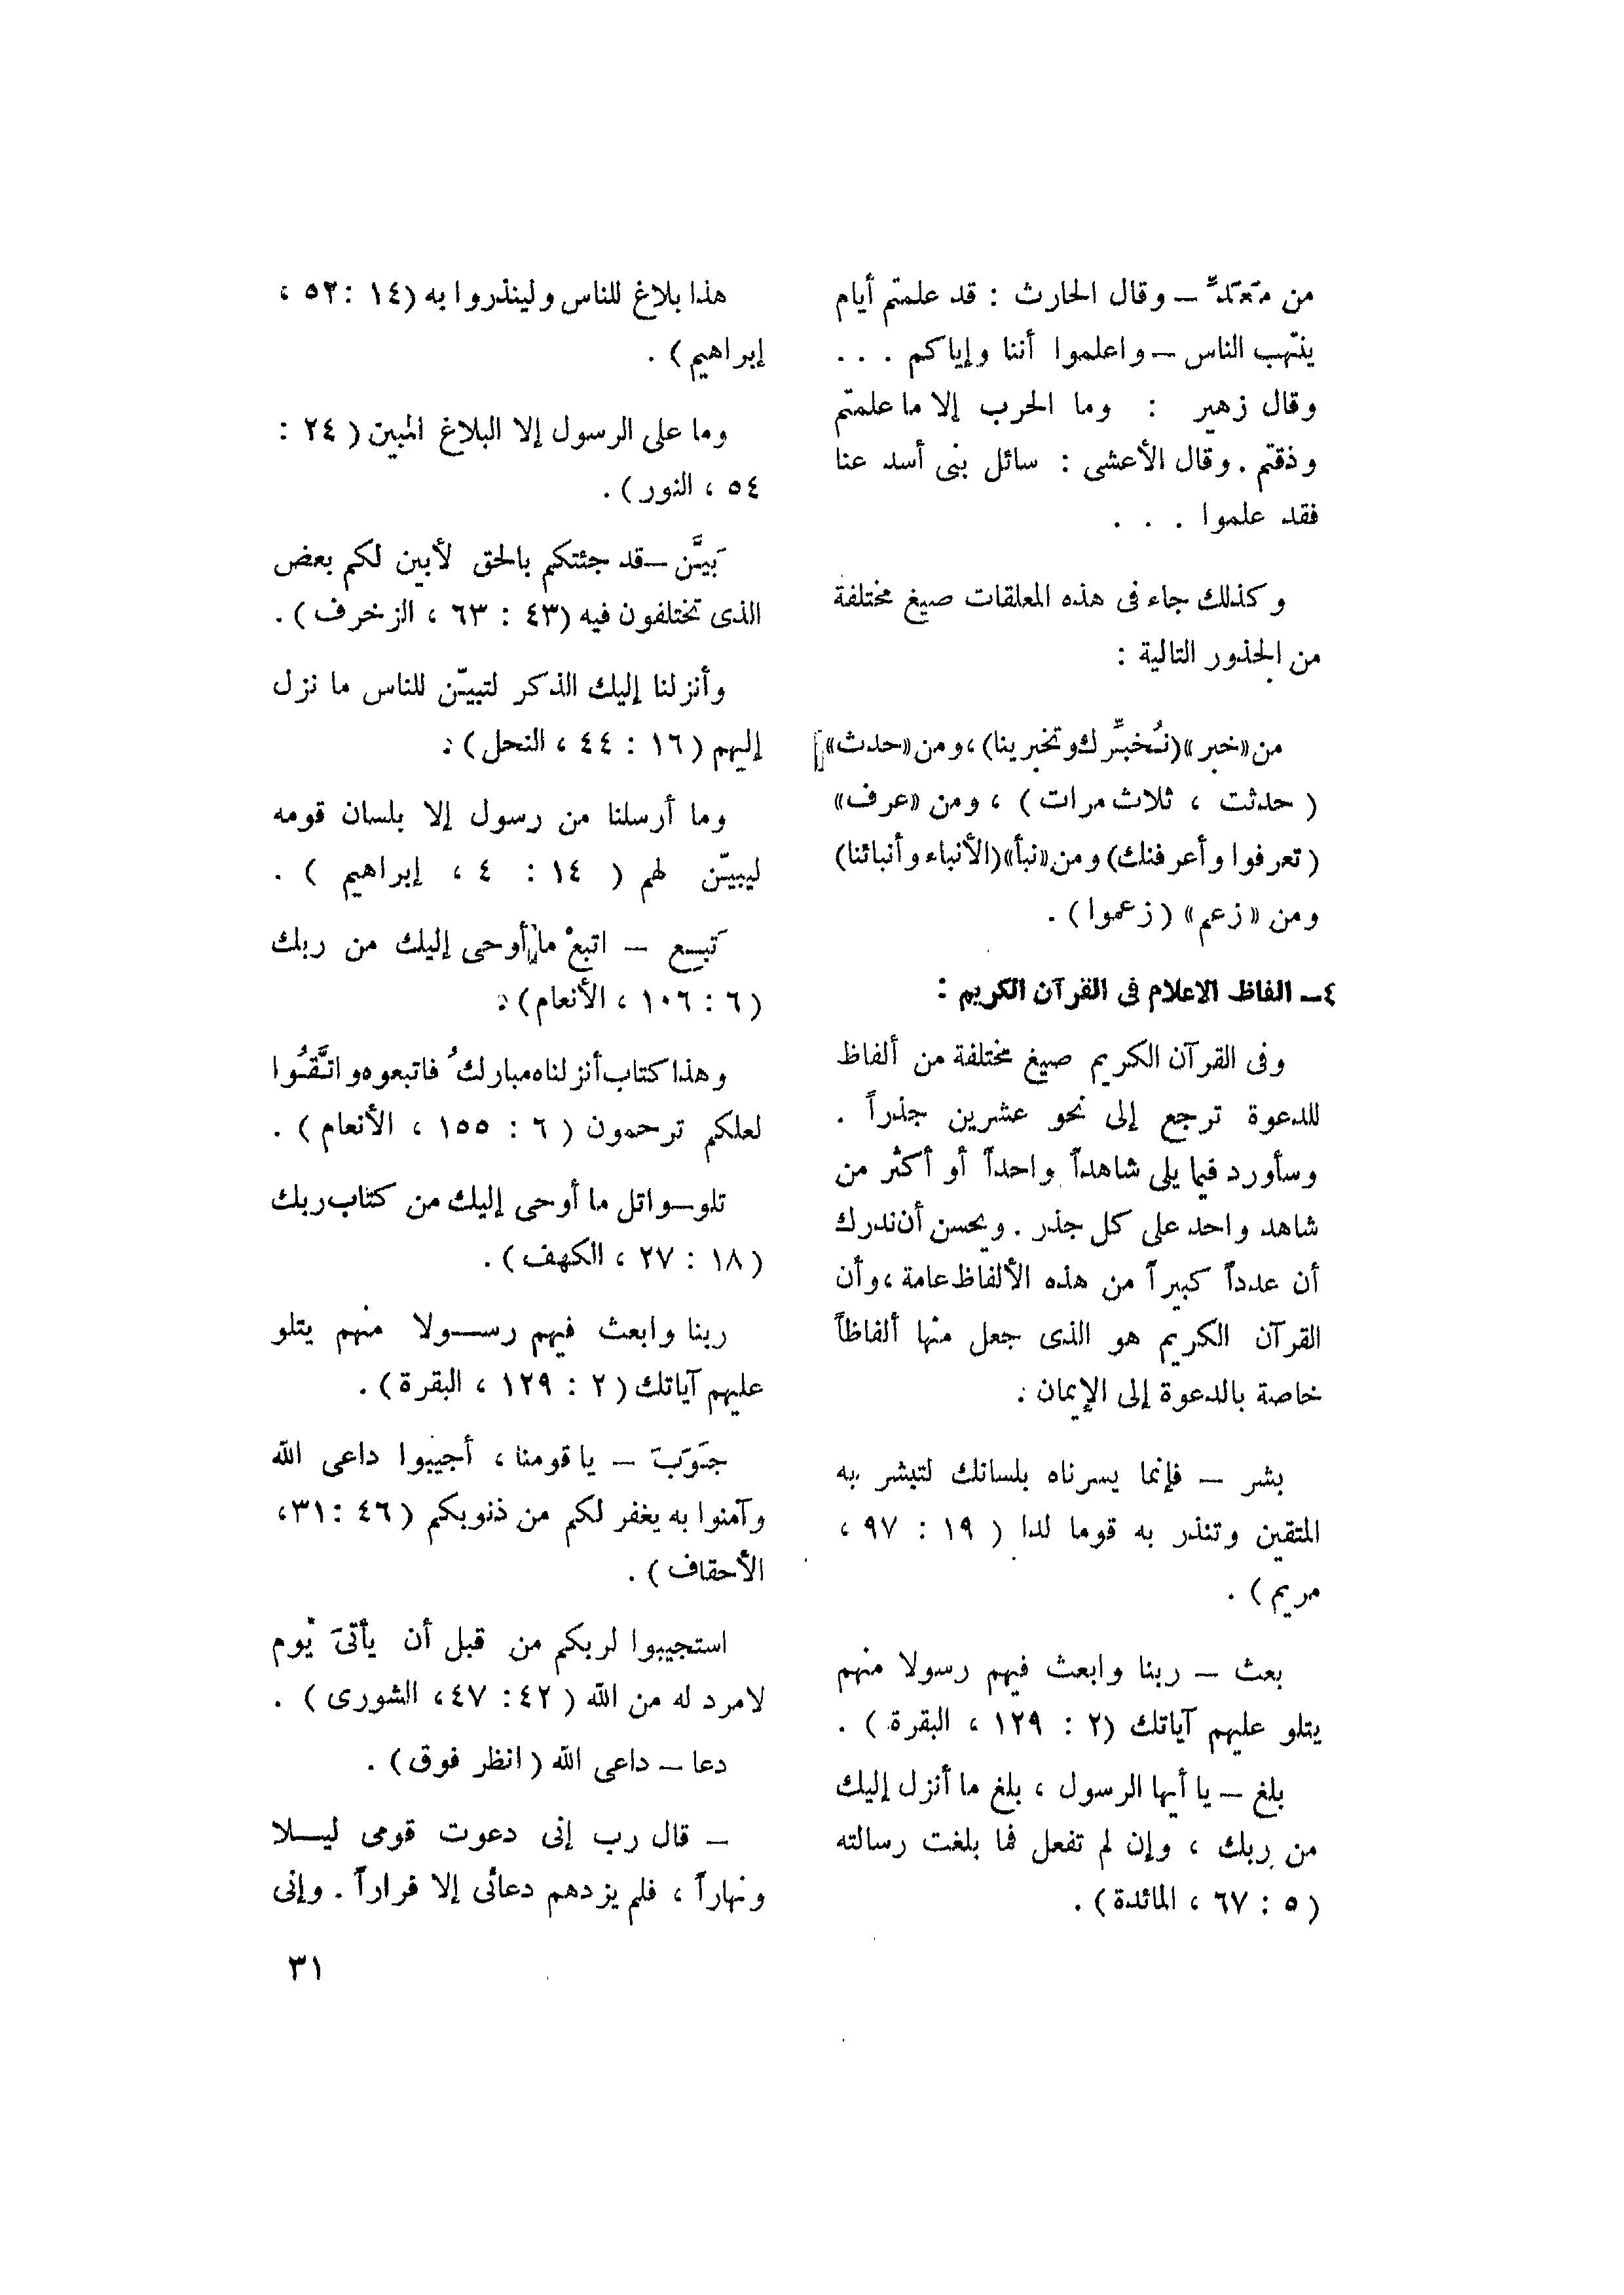 من مَعَدّ — وقال الحارث : قد علمتم أيام
ينتهب الناس — واعلموا أننا وإياكم . . .
وقال زهير : وما الحرب إلا ما علمتم
وذقتم . وقال الأعشى : سائل بنى أسد عنا
فقد علموا . . .
وكذلك جاء فى هذه المعلقات صيغ مختلفة
من الجذور التالية :
من «خبر» (نُخبِّرك وتخبرينا) ، ومن «حدث»
( حدثت ، ثلاث مرات ) ، ومن «عرف»
( تعرفوا وأعرفنك) ومن «نبأ» (الأنباء وأنبائنا)
ومن «زعم» (زعموا) .
٤ — الفاظ الاعلام فى القرآن الكريم :
وفى القرآن الكريم صيغ مختلفة من ألفاظ
للدعوة ترجع إلى نحو عشرين جذراً .
وسأورد فيما يلى شاهداً واحداً أو أكثر من
شاهد واحد على كل جذر . ويحسن أن ندرك
أن عدداً كبيراً من هذه الألفاظ عامة ، وأن
القرآن الكريم هو الذى جعل منها ألفاظاً
خاصة بالدعوة إلى الإيمان .
بشر — فإنما يسرناه بلسانك لتبشر به
المتقين وتنذر به قوما لدا ( ١٩ : ٩٧ ،
مريم ) .
بعث — ربنا وابعث فيهم رسولا منهم
يتلو عليهم آياتك (٢ : ١٢٩ ، البقرة ) .
بلغ — يا أيها الرسول ، بلغ ما أنزل إليك
من ربك ، وإن لم تفعل فما بلغت رسالته
( ٥ : ٦٧ ، المائدة ) .
هذا بلاغ للناس ولينذروا به (١٤ : ٥٢ ،
إبراهيم ) .
وما على الرسول إلا البلاغ المبين ( ٢٤ :
٥٤ ، النور ) .
بَيَّن — قد جئتكم بالحق لأبين لكم بعض
الذى تختلفون فيه (٤٣ : ٦٣ ، الزخرف ) .
وأنزلنا إليك الذكر لتبيّن للناس ما نزل
إليهم ( ١٦ : ٤٤ ، النحل ) .
وما أرسلنا من رسول إلا بلسان قومه
ليبيّن لهم ( ١٤ : ٤ ، إبراهيم ) .
تَبِع — اتبعْ ما أوحى إليك من ربك
( ٦ : ١٠٦ ، الأنعام ) .
وهذا كتاب أنزلناه مباركُ فاتبعوه واتَّقُوا
لعلكم ترحمون ( ٦ : ١٥٥ ، الأنعام ) .
تلو — واتل ما أوحى إليك من كتاب ربك
( ١٨ : ٢٧ ، الكهف ) .
ربنا وابعث فيهم رسولا منهم يتلو
عليهم آياتك ( ٢ : ١٢٩ ، البقرة ) .
جَوَبَ — يا قومنا ، أجيبوا داعى الله
وآمنوا به يغفر لكم من ذنوبكم ( ٤٦ : ٣١ ،
الأحقاف ) .
استجيبوا لربكم من قبل أن يأتىَ يوم
لا مرد له من الله ( ٤٢ : ٤٧ ، الشورى ) .
دعا — داعى الله ( انظر فوق ) .
— قال رب إنى دعوت قومى ليلا
ونهاراً ، فلم يزدهم دعائى إلا فراراً . وإنى
٣١